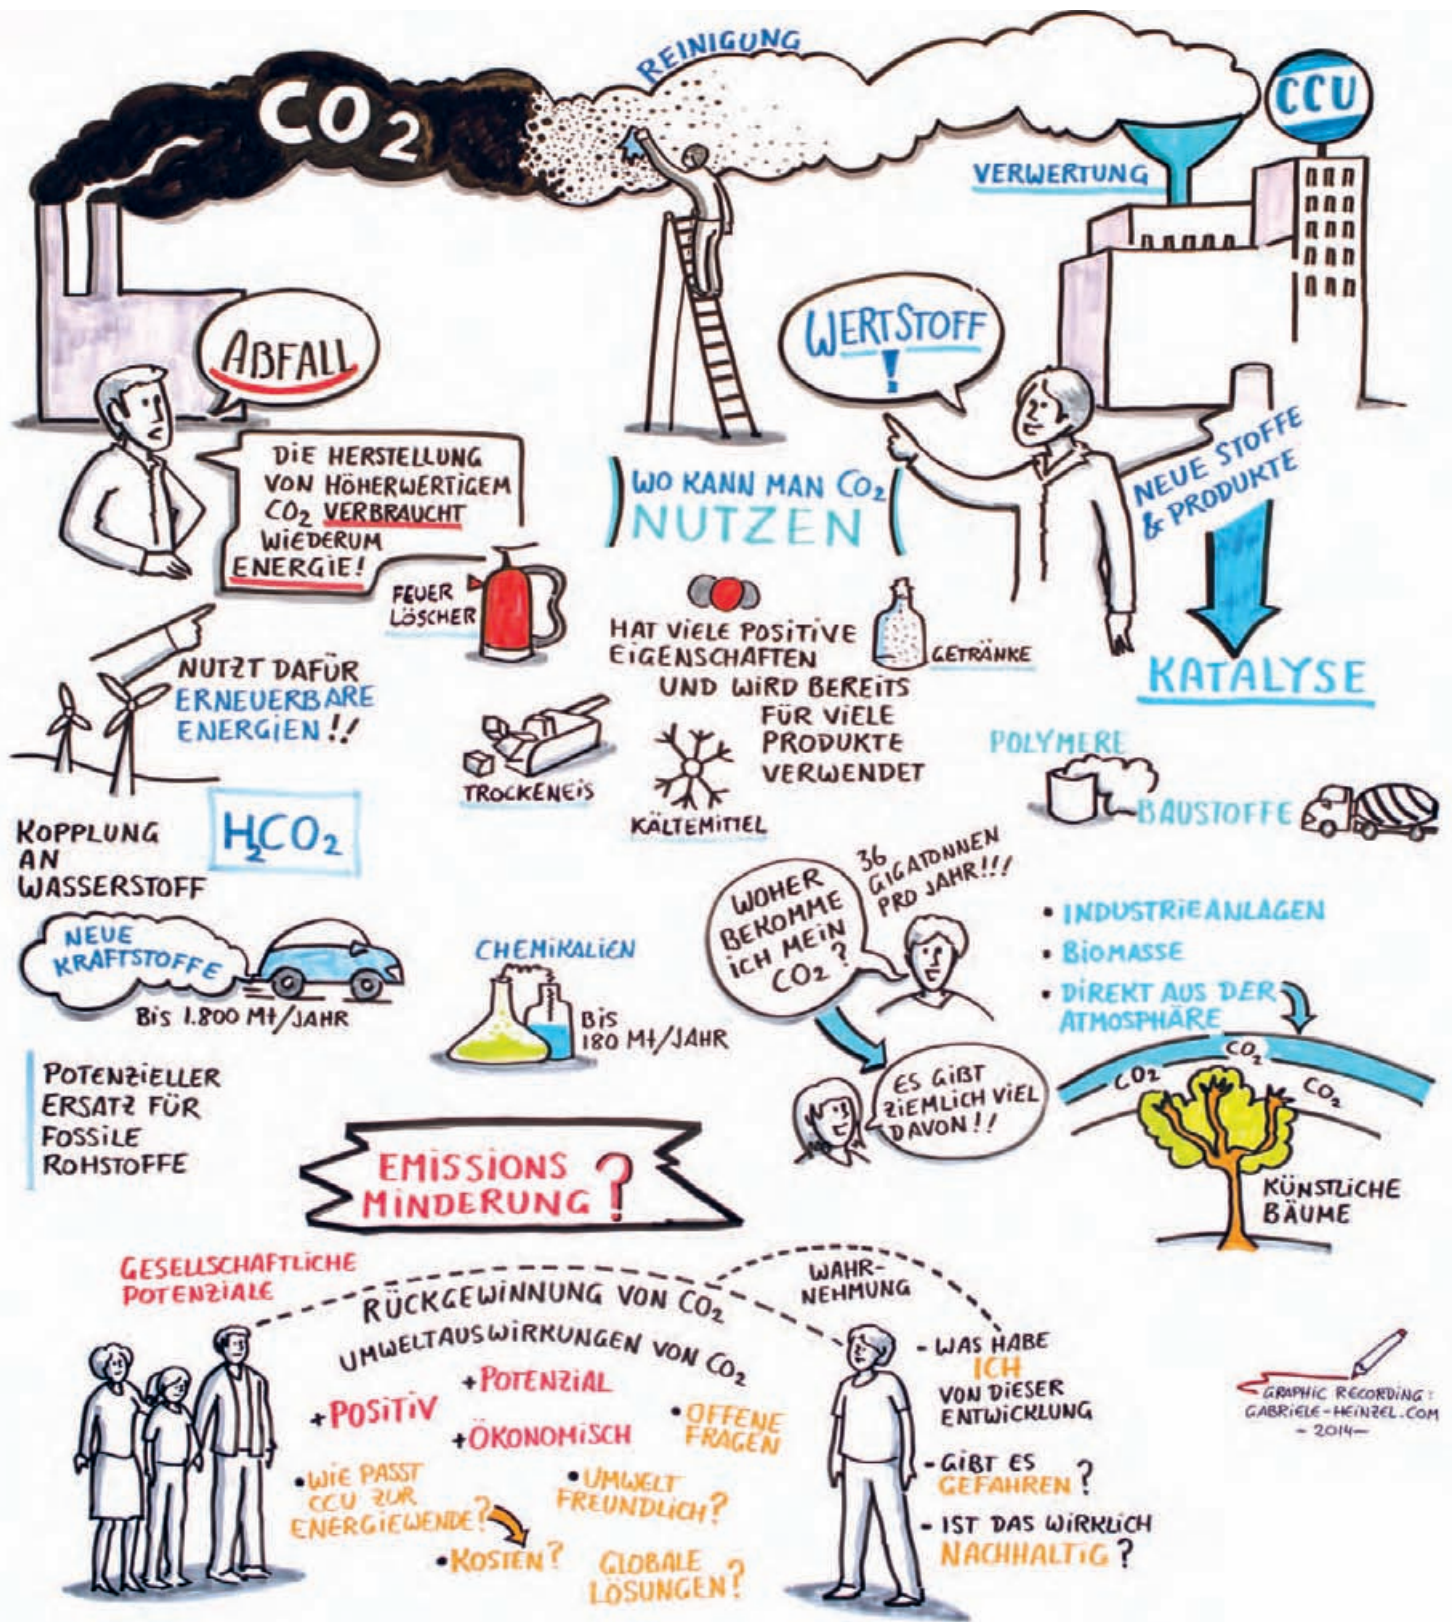 CO2
REINIGUNG
CCU
VERWERTUNG
ABFALL
WERTSTOFF
!
DIE HERSTELLUNG
VON HÖHERWERTIGEM
CO2 VERBRAUCHT
WIEDERUM
ENERGIE!
WO KANN MAN CO2
NUTZEN
NEUE STOFFE
& PRODUKTE
FEUER
LÖSCHER
HAT VIELE POSITIVE
EIGENSCHAFTEN
UND WIRD BEREITS
FÜR VIELE
PRODUKTE
VERWENDET
GETRÄNKE
KATALYSE
NUTZT DAFÜR
ERNEUERBARE
ENERGIEN!!
TROCKENEIS
KÄLTEMITTEL
POLYMERE
BAUSTOFFE
KOPPLUNG
AN
WASSERSTOFF
H2CO2
NEUE
KRAFTSTOFFE
BIS 1.800 Mt/JAHR
CHEMIKALIEN
BIS
180 Mt/JAHR
WOHER
BEKOMME
ICH MEIN
CO2?
36
GIGATONNEN
PRO JAHR!!!
• INDUSTRIEANLAGEN
• BIOMASSE
• DIREKT AUS DER
ATMOSPHÄRE
ES GIBT
ZIEMLICH VIEL
DAVON!!
CO2
CO2
CO2
KÜNSTLICHE
BÄUME
POTENZIELLER
ERSATZ FÜR
FOSSILE
ROHSTOFFE
EMISSIONS
MINDERUNG?
GESELLSCHAFTLICHE
POTENZIALE
RÜCKGEWINNUNG VON CO2
UMWELTAUSWIRKUNGEN VON CO2
WAHR-
NEHMUNG
+ POTENZIAL
+ POSITIV
+ ÖKONOMISCH
• OFFENE
FRAGEN
• WIE PASST
CCU ZUR
ENERGIEWENDE?
• UMWELT
FREUNDLICH?
• KOSTEN?
GLOBALE
LÖSUNGEN?
- WAS HABE
ICH
VON DIESER
ENTWICKLUNG
- GIBT ES
GEFAHREN?
- IST DAS WIRKLICH
NACHHALTIG?
GRAPHIC RECORDING:
GABRIELE-HEINZEL.COM
- 2014 -